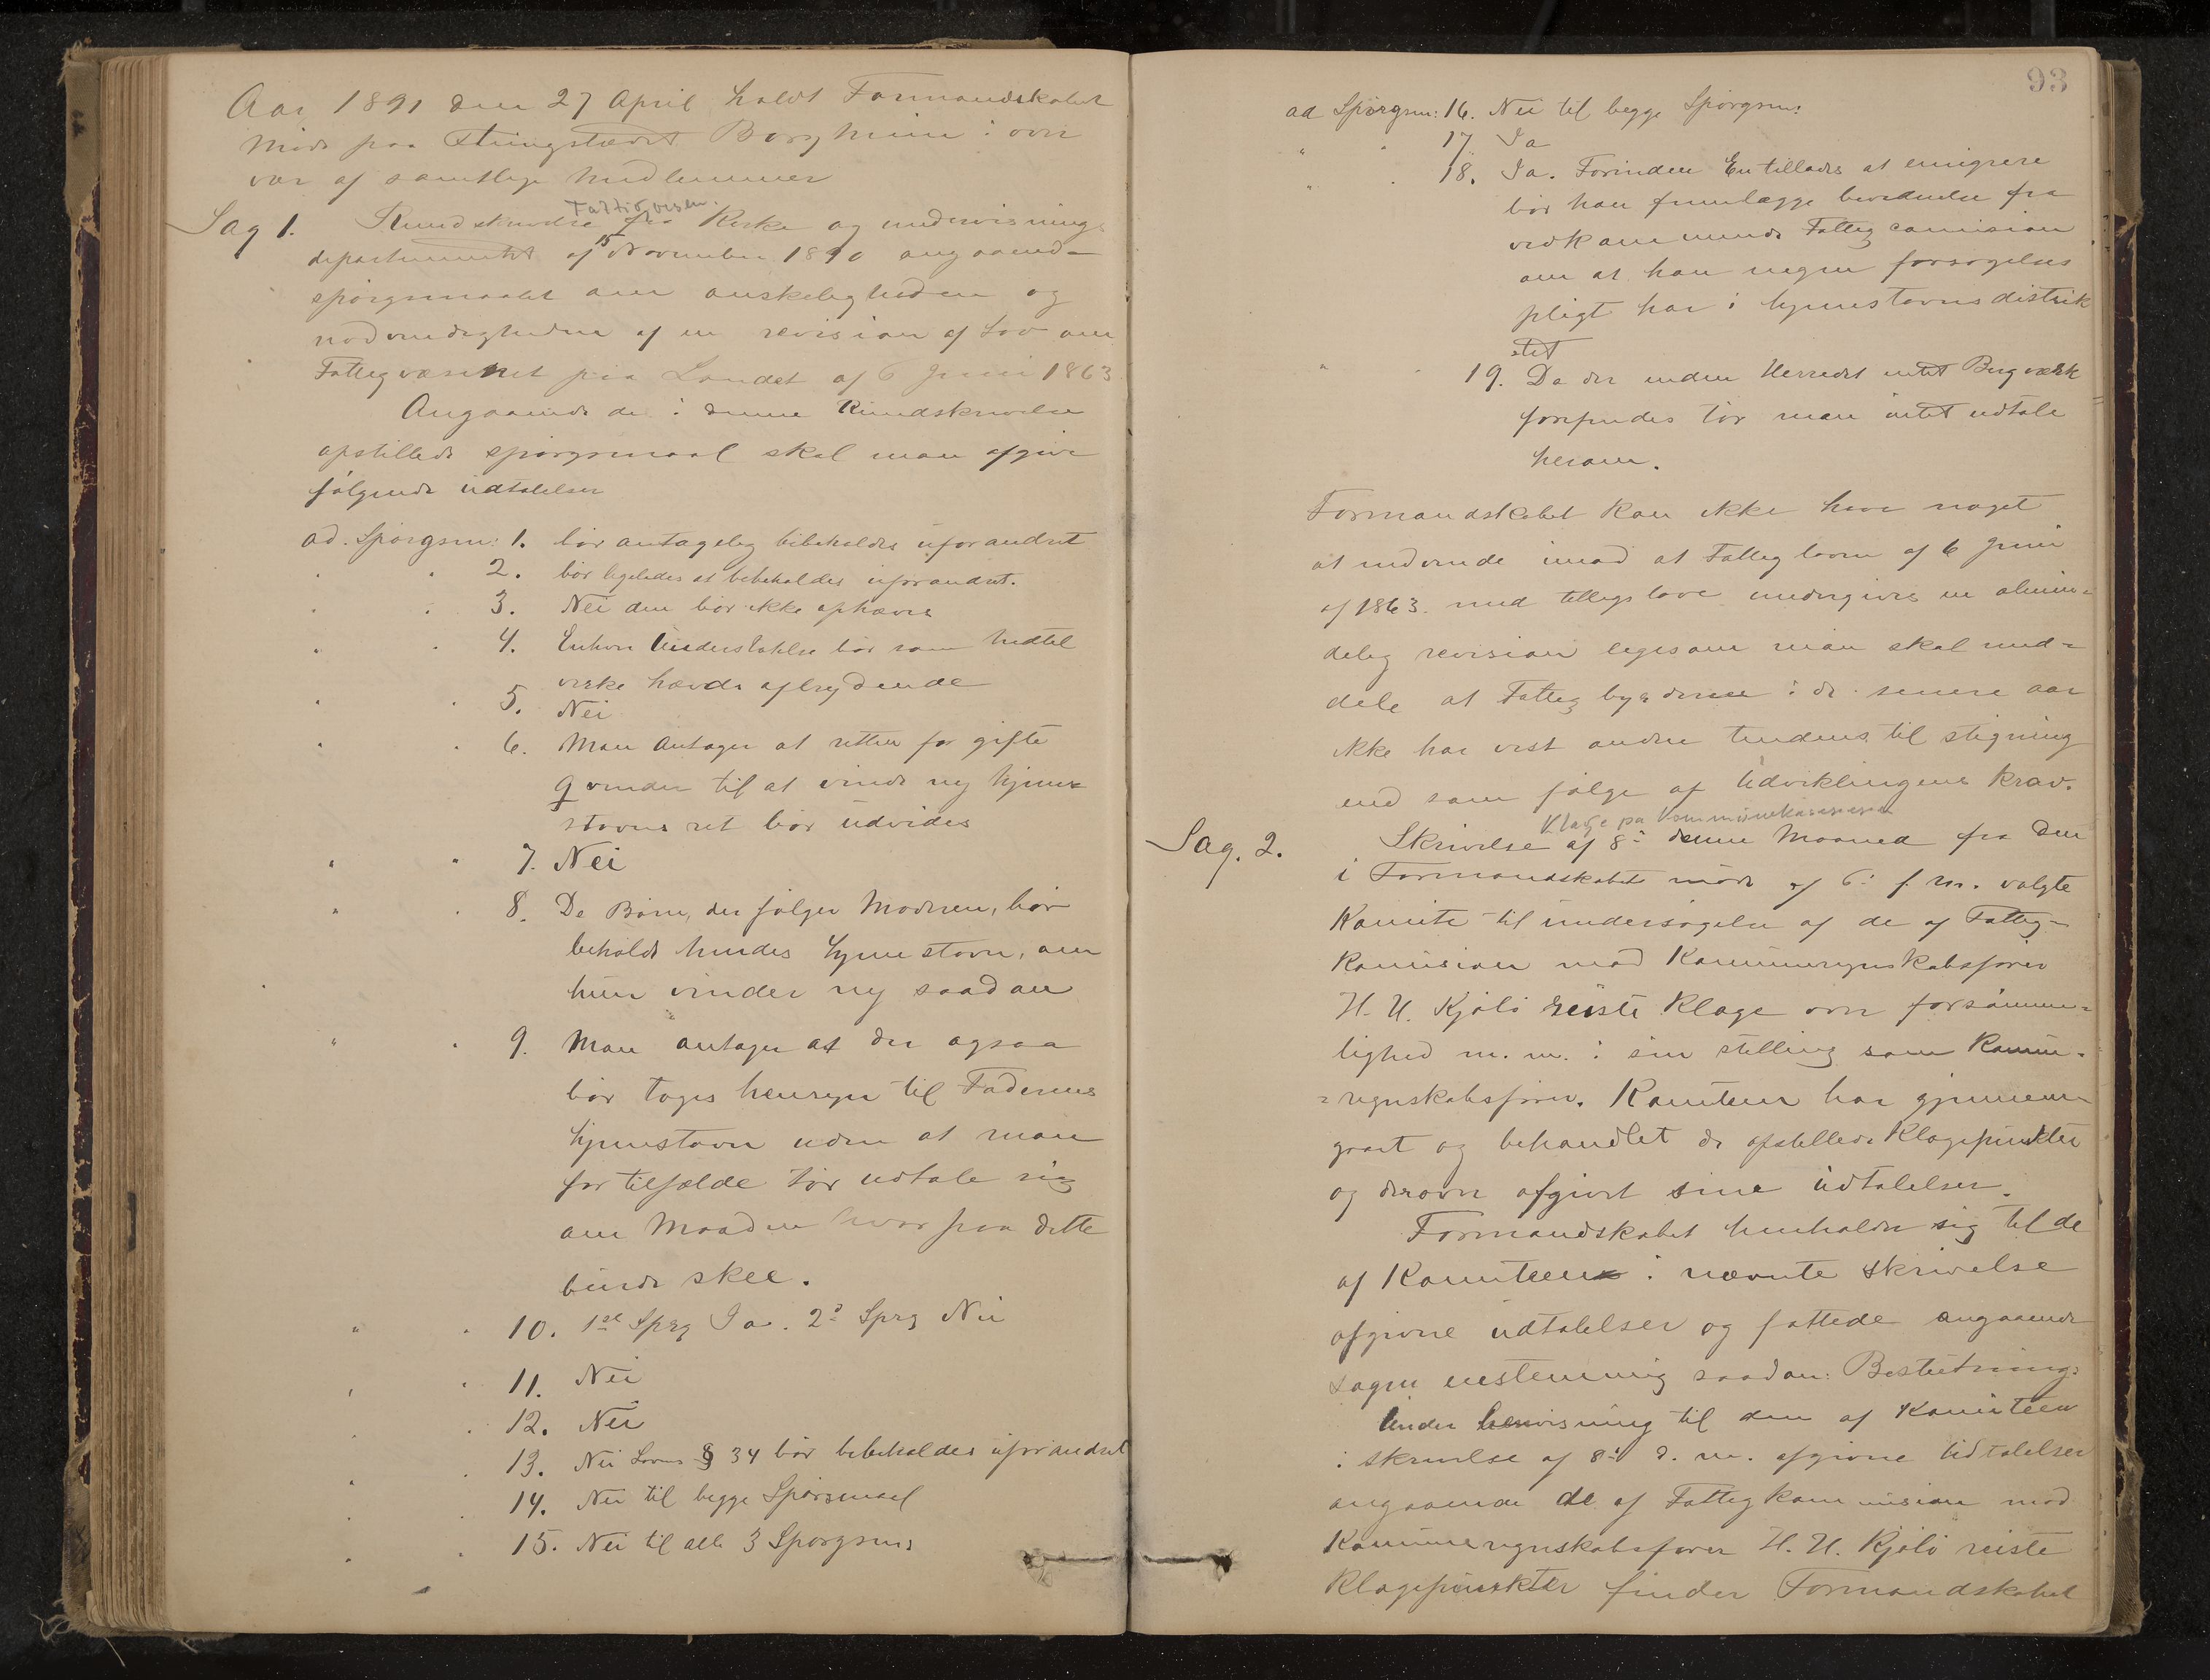 Aar 1891 den 27 April holdt Formandskabet
møde paa Thingstædet Borgheim i over
vær af samtlige medlemmer
Fattigvesen.
Sag 1. Rundskrivelse fra Kirke og undervisnings
departementet af 15 November 1890 angaaende
spørgsmaalet om ønskeligheden og
nødvendigheden af en revision af Lov om
Fattigvæsenet paa Landet af 6 Juni 1863
Angaaende de i denne Rundskrivelse
opstillede spørgsmaal skal man afgive
følgende udtalelser
ad. Spørgsm: 1. bør antagelig bibeholdes uforandret
" " 2. bør ligeledes at bibeholdes uforandret.
" " 3. Nei den bør ikke ophæves
" " 4. Enhver Understøttelse bør som hidtil
virke hævds afbrydende
" " 5. Nei
" " 6. Man antager at retten for gifte
qvinder til at vinde ny hjem-
stavns ret bør udvides
" " 7. Nei
" " 8. De Børn, der følger Moderen, bør
beholde hendes hjemstavn, om
hun vinder ny saadan
" " 9. Man antager at der ogsaa
bør tages hensyn til Faderens
hjemstavn uden at man
for tilfælde tør udtale sig
om Maaden hvorpaa dette
burde skee.
" " 10. 1ste Sprg Ja. 2d Sprg Nei
" " 11. Nei
" " 12. Nei
" " 13. Nei Lovens § 34 bør bibeholdes uforandret
" " 14. Nei til begge Spørsmaal
" " 15. Nei til alle 3 Spørgsm:
93
ad Spørgsm: 16. Nei til begge Spørgsm:
" " 17. Ja
" " 18. Ja. Forinden En tillades at emigrere
bør han fremlægge bevidnelse fra
vedkommende Fattigcomision
om at han ingen forsørgelses
pligt har i hjemstavnsdistrik
tet
" " 19. Da der inden Herredet intet Bergværk
forefindes tør man intet udtale
herom.
Formandskabet kan ikke have noget
at indvende imod at Fattigloven af 6 Juni
af 1863 med tillægslove undergives en almin-
delig revision ligesom man skal med-
dele at Fattigbyrderne i de senere aar
ikke har vist anden tendens til stigning
end som følge af Udviklingens Krav.
Klage på kommunekassereren
Sag. 2. Skrivelse af 8de denne Maaned fra den
i Formandskabets møde af 6te f. m. valgte
Komite til undersøgelse af de af Fattig-
komision mod Kommuneregnskabsfører
H. U. Kjølø reiste Klage over forsømme-
lighed m. m. i sin stilling som Komm-
=regnskabsfører. Komiteen har gjennem
gaaet og behandlet de opstillede Klagepunkter
og derover afgivet sine udtalelser.
Formandskabet henholder sig til de
af Komiteen i nævnte skrivelse
afgivne udtalelser og fattede angaaende
sagen enstemmig saadan Beslutning:
Under henvisning til den af Komiteen
i skrivelse af 8de d. m. afgivne Udtalelser
angaaende de af Fattigkommision mod
Kommuneregnskabsfører H. U. Kjølø reiste
Klagepunkter finder Formandskabet